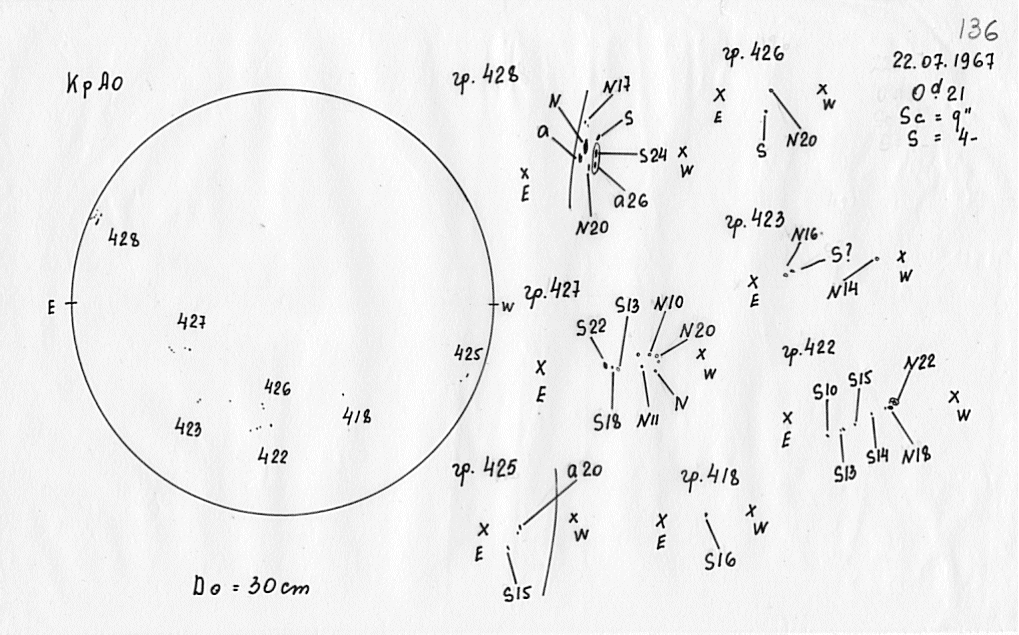 136
22.07.1967
0ᵈ 21
Sc = 9"
S = 4-
КрАО
428
E
W
427
425
426
423
418
422
D⊙ = 30 cm
гр. 428
N
N17
a
S
S24
X
W
X
E
a26
N20
гр. 426
X
E
X
W
S
N20
гр. 423
N16
S?
X
E
N14
X
W
гр. 427
S22
S13
N10
N20
X
E
X
W
S18
N11
N
гр. 422
S10
S15
N22
X
E
X
W
S13
S14
N18
гр. 425
a20
X
E
X
W
S15
гр. 418
X
E
X
W
S16